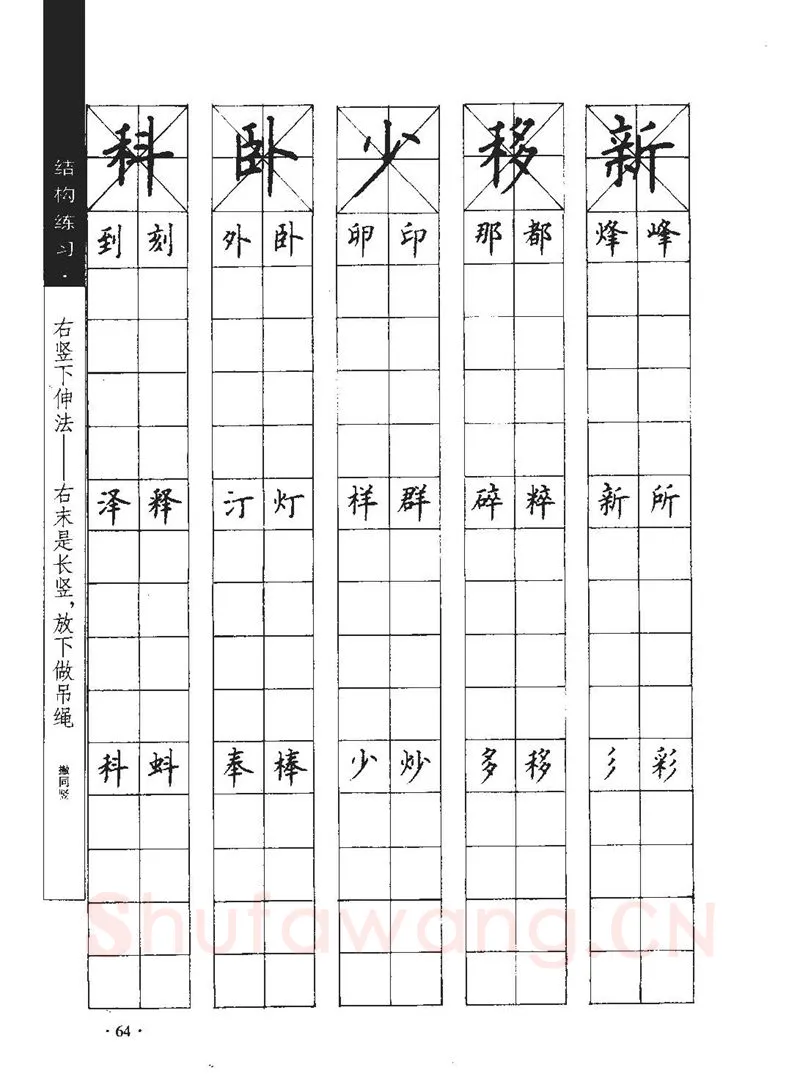 结构练习·
右竖下伸法——右末是长竖，放下做吊绳
撇同竖
科 卧 少 移 新
到 刻 外 卧 卯 印 那 都 烽 峰
泽 释 汀 灯 样 群 碎 粹 新 所
科 蚪 奉 棒 少 炒 多 移 彡 彩
Shufawang.CN
·64·